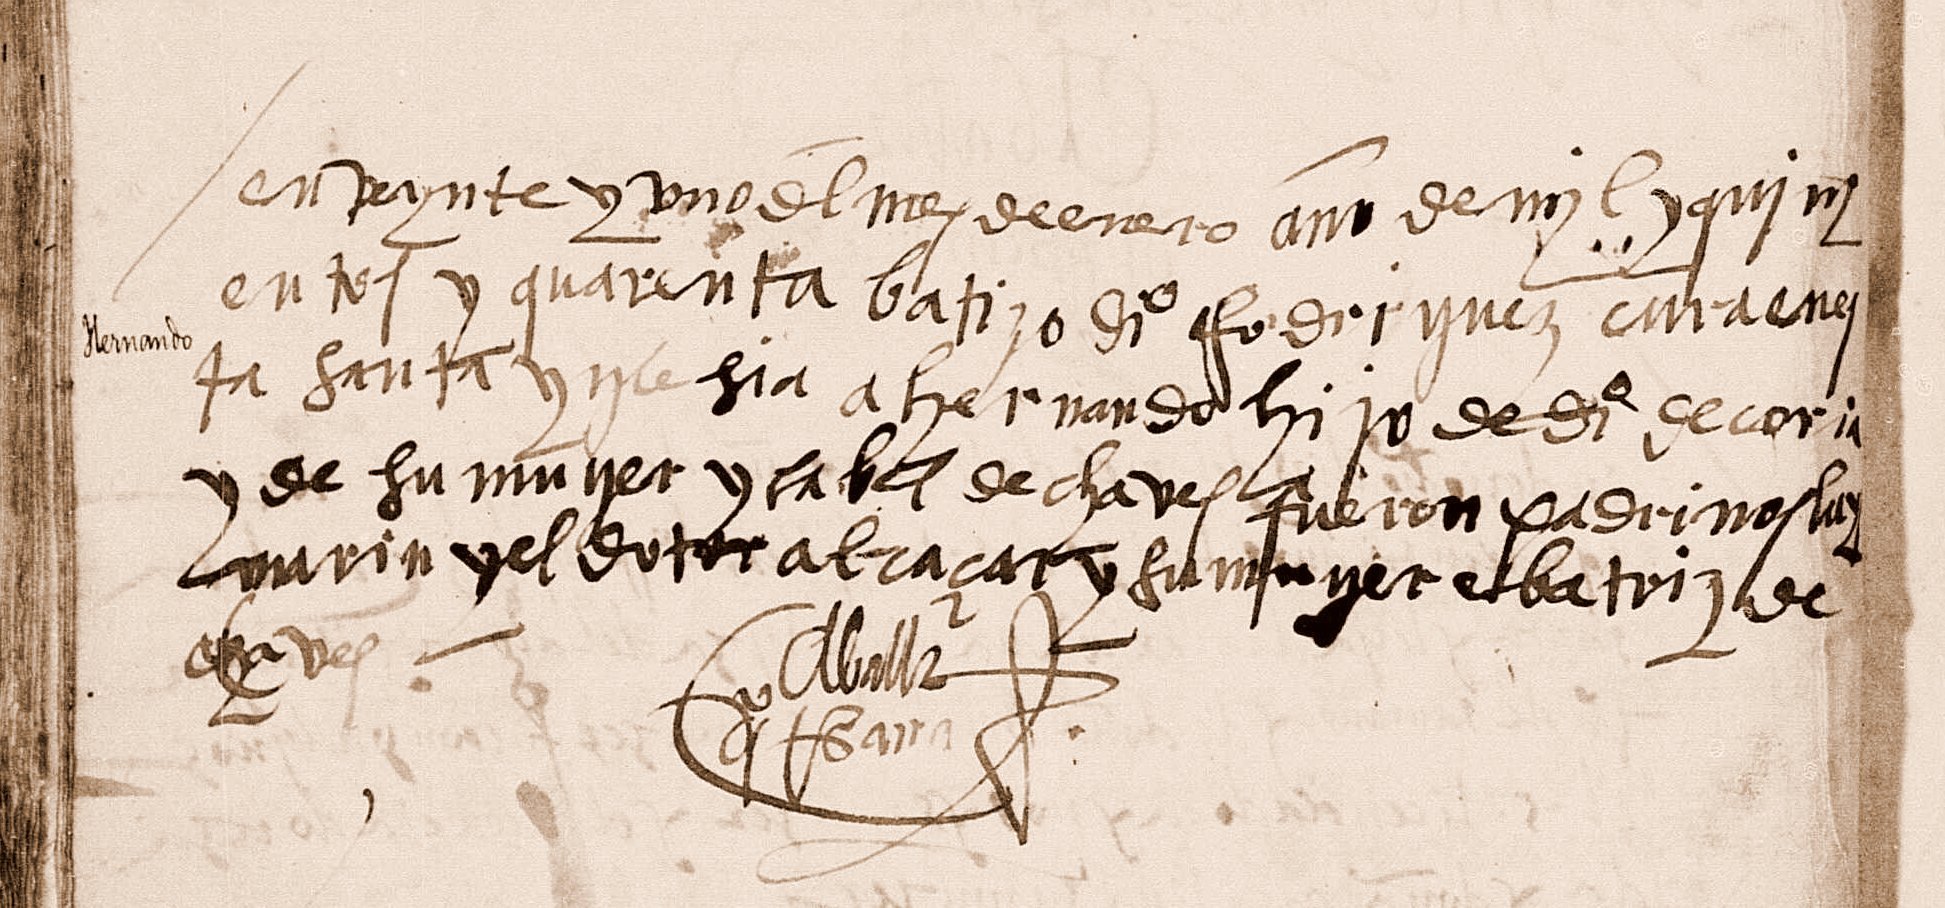 en veynte y uno del mes de enero año de mjl y quinj
entos y quarenta batizo di° Rodriguez cura en es
Hernando
ta santa ygle sia a hernando hijo de di° de coria
y de su muger ysabel de chaves fueron padrinos luys
marin y el dotor alcaçar y su muger e batriz de
chaves